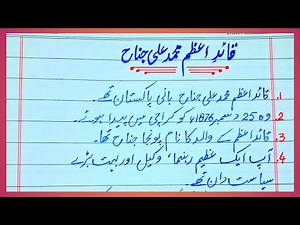 قائد اعظم محمد علی جناح
1. قائد اعظم محمد علی جناح بانی پاکستان تھے۔
2. وہ 25 دسمبر 1876ء کو کراچی میں پیدا ہوئے۔
3. قائد اعظم کے والد کا نام پونجا جناح تھا۔
4. آپ ایک عظیم رہنما، وکیل اور بہت بڑے
سیاست دان تھے۔